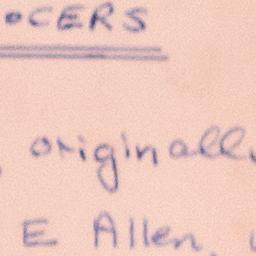 OCERS
originally
E Allen,